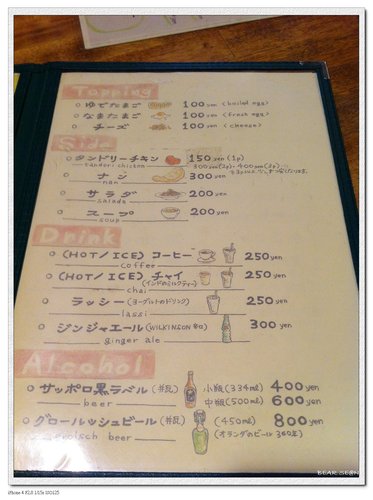 Topping
ゆでたまご 100 yen (boiled egg)
なまたまご 100 yen (fresh egg)
チーズ 100 yen (cheese)
Side
タンドリーチキン 150 yen (1p)
tandori chicken 300yen(2p)・400yen(3p)
ナン 300 yen
nan
サラダ 200 yen
salada
スープ 200 yen
soup
Drink
(HOT/ICE) コーヒー 250 yen
coffee
(HOT/ICE) チャイ (インドのミルクティー) 250 yen
chai
ラッシー (ヨーグルトのドリンク) 250 yen
lassi
ジンジャエール (WILKINSON 辛口) 300 yen
ginger ale
Alcohol
サッポロ黒ラベル (瓶) 小瓶 (334ml) 400 yen
beer 中瓶 (500ml) 600 yen
グロールッシュビール (瓶) (450ml) 800 yen
beer (オランダのビール
BEAR SEAN
iPhone 4